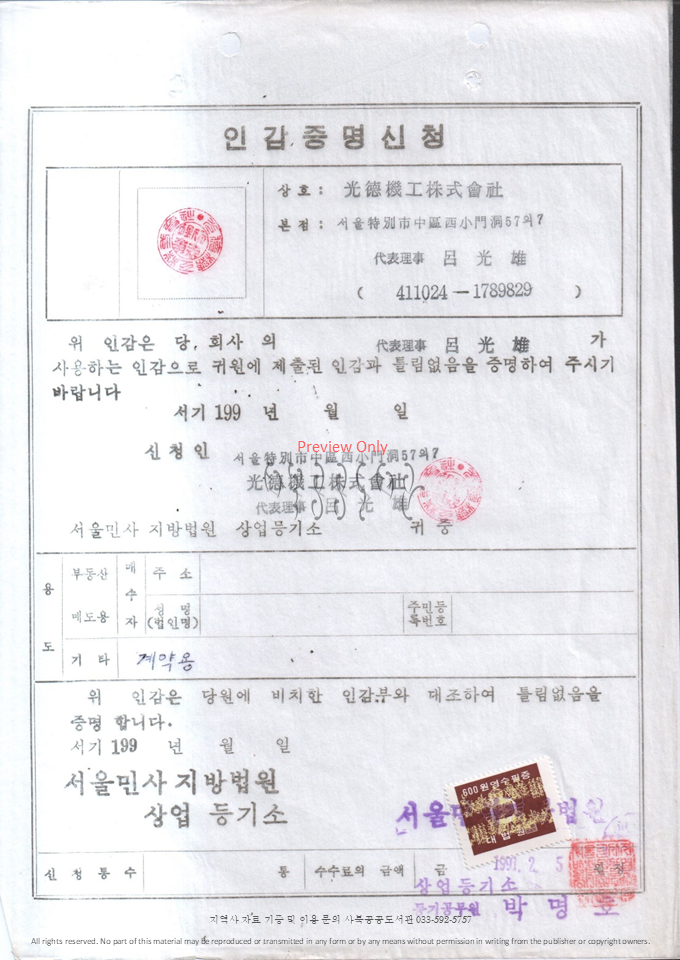 인감증명신청
상호: 光德機工株式會社
본점: 서울特別市中區西小門洞57의7
代表理事 呂光雄
( 411024-1789829 )
위 인감은 당, 회사 의 代表理事 呂光雄 가
사용하는 인감으로 귀원에 제출된 인감과 틀림없음을 증명하여 주시기
바랍니다
서기 199 년 월 일
Preview Only
신청인 서울特別市中區西小門洞57의7
光德機工株式會社
代表理事 呂光雄
서울민사 지방법원 상업등기소 귀중
용도
부동산 매도용
매수자
주소
성명 (법인명)
주민등록번호
기타 계약용
위 인감은 당원에 비치한 인감부와 대조하여 틀림없음을
증명 합니다.
서기 199 년 월 일
서울민사 지방법원
상업 등기소
600원영수필증
대법원
서울민 법원
1991. 2. 5
신청통수 통 수수료의 금액 금
상업등기소
등기공무원 박명호
지역사 자료 기증 및 이용 문의 사북공공도서관 033-592-5757
All rights reserved. No part of this material may be reproduced or transmitted in any form or by any means without permission in writing from the publisher or copyright owners.